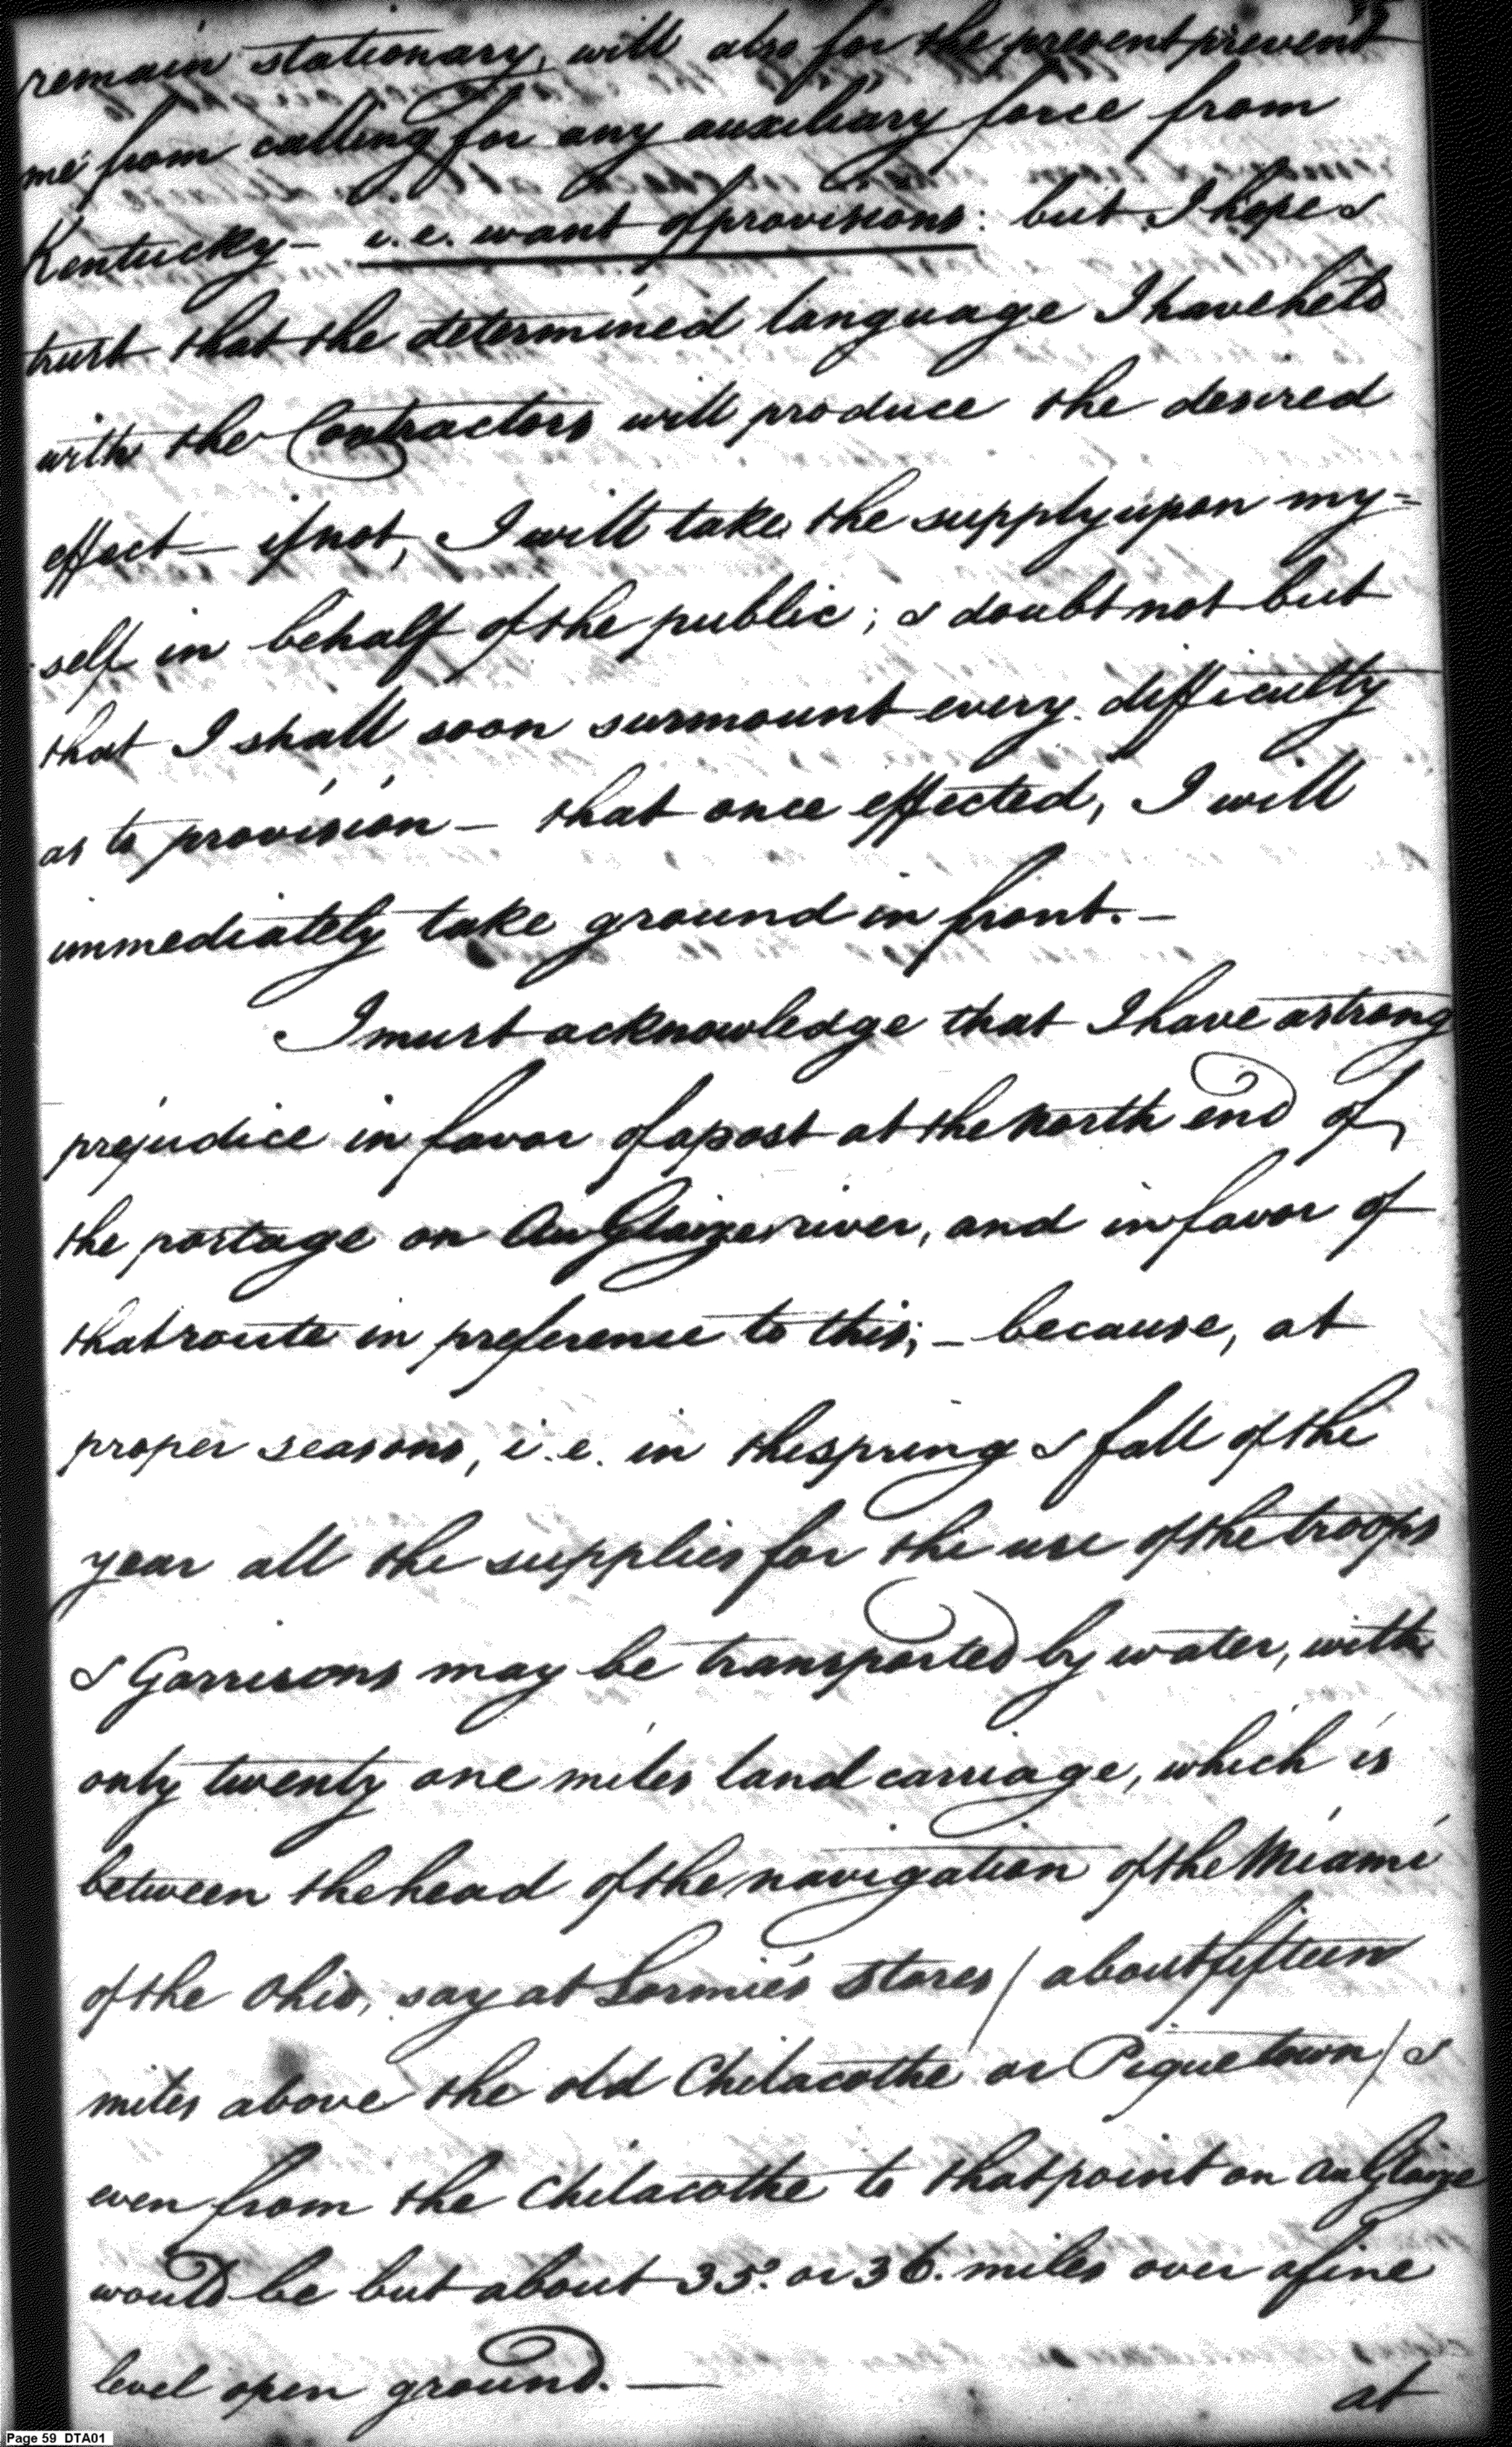 remain stationary, will also for the present prevent
me from calling for any auxiliary force from
Kentucky – i.e. want of provisions: but I hope &
trust that the determined language I have held
with the Contractors will produce the desired
effect — if not, I will take the supply upon my=
self in behalf of the public; & doubt not but
that I shall soon surmount every difficulty
as to provision – that once effected, I will
immediately take ground in front. –
I must acknowledge that I have a strong
prejudice in favor of a post at the North end of
the portage on Au Glaize river, and in favor of
that route in preference to this; – because, at
proper seasons, i.e. in the spring & fall of the
year all the supplies for the use of the troops
& Garrisons may be transported by water, with
only twenty one miles land carriage, which is
between the head of the navigation of the Miami
of the Ohio, say at Lormie's Stores / about fifteen
miles above the old Chilacothe or Pique town / &
even from the Chilacothe to that point on Au Glaize
would be but about 35. or 36. miles over a fine
level open ground. —
at
Page 59 DTA01